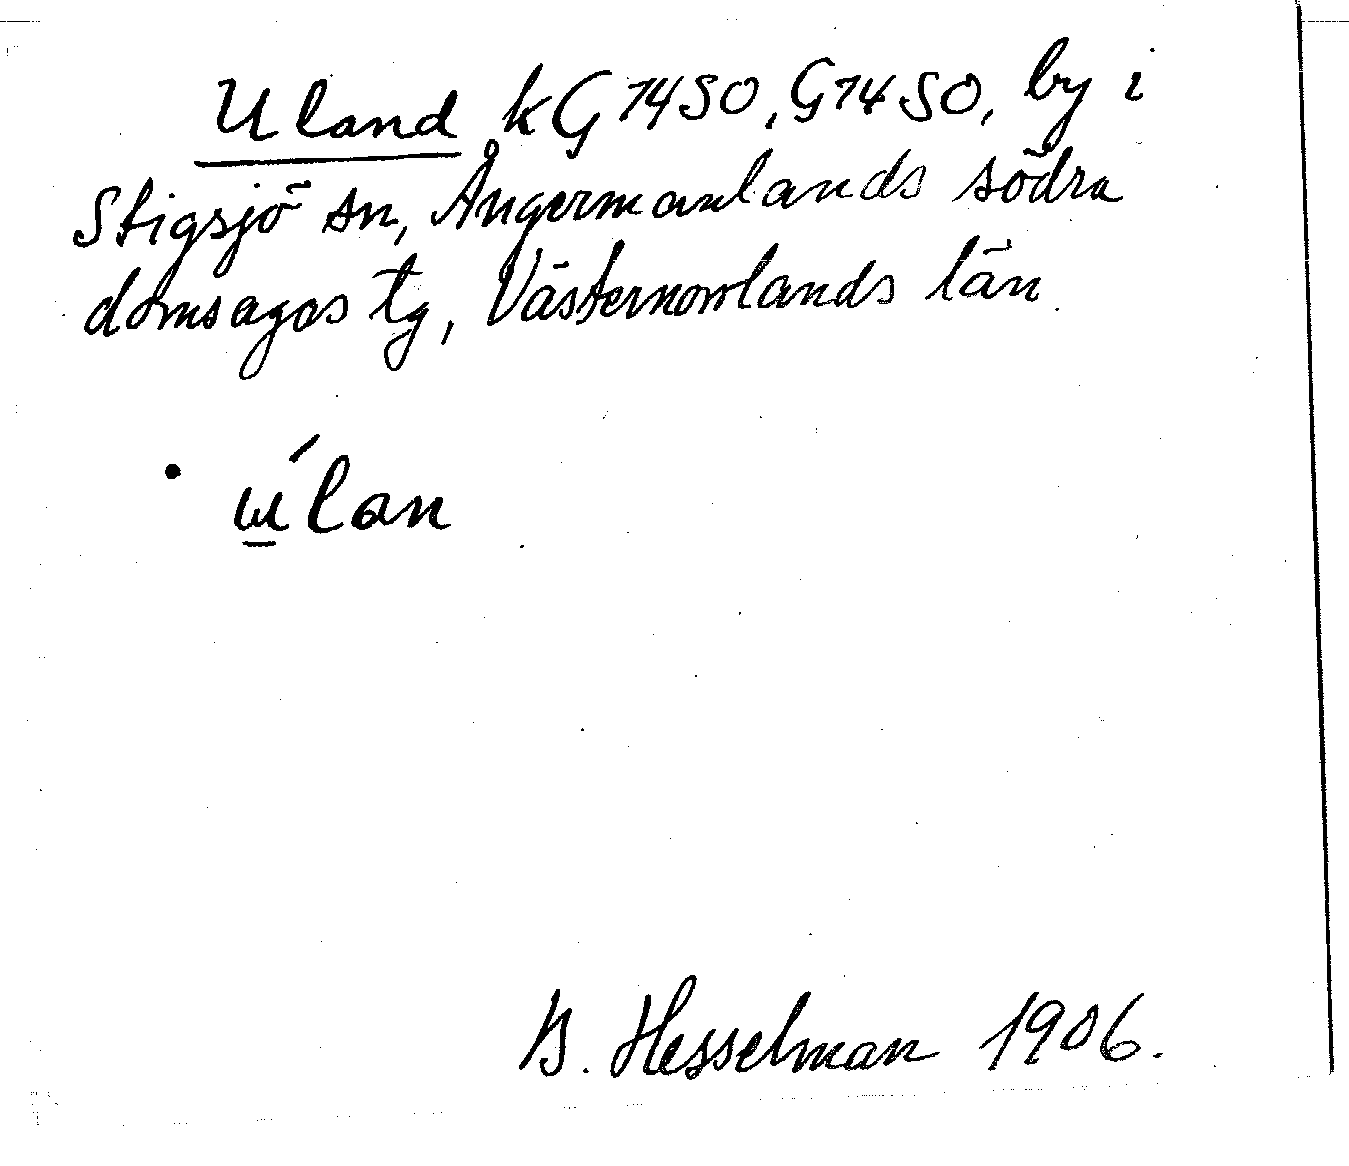 Uland kG74SO, G74SO, by i
Stigsjö sn, Ångermanlands södra
domsagas tg, Västernorrlands län.
• ɯ̲́lan
B. Hesselman 1906.